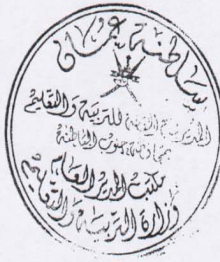 سلطنة عمان
المديرية العامة للتربية والتعليم
بمحافظة جنوب الباطنة
مكتب المدير العام
وزارة التربية والتعليم